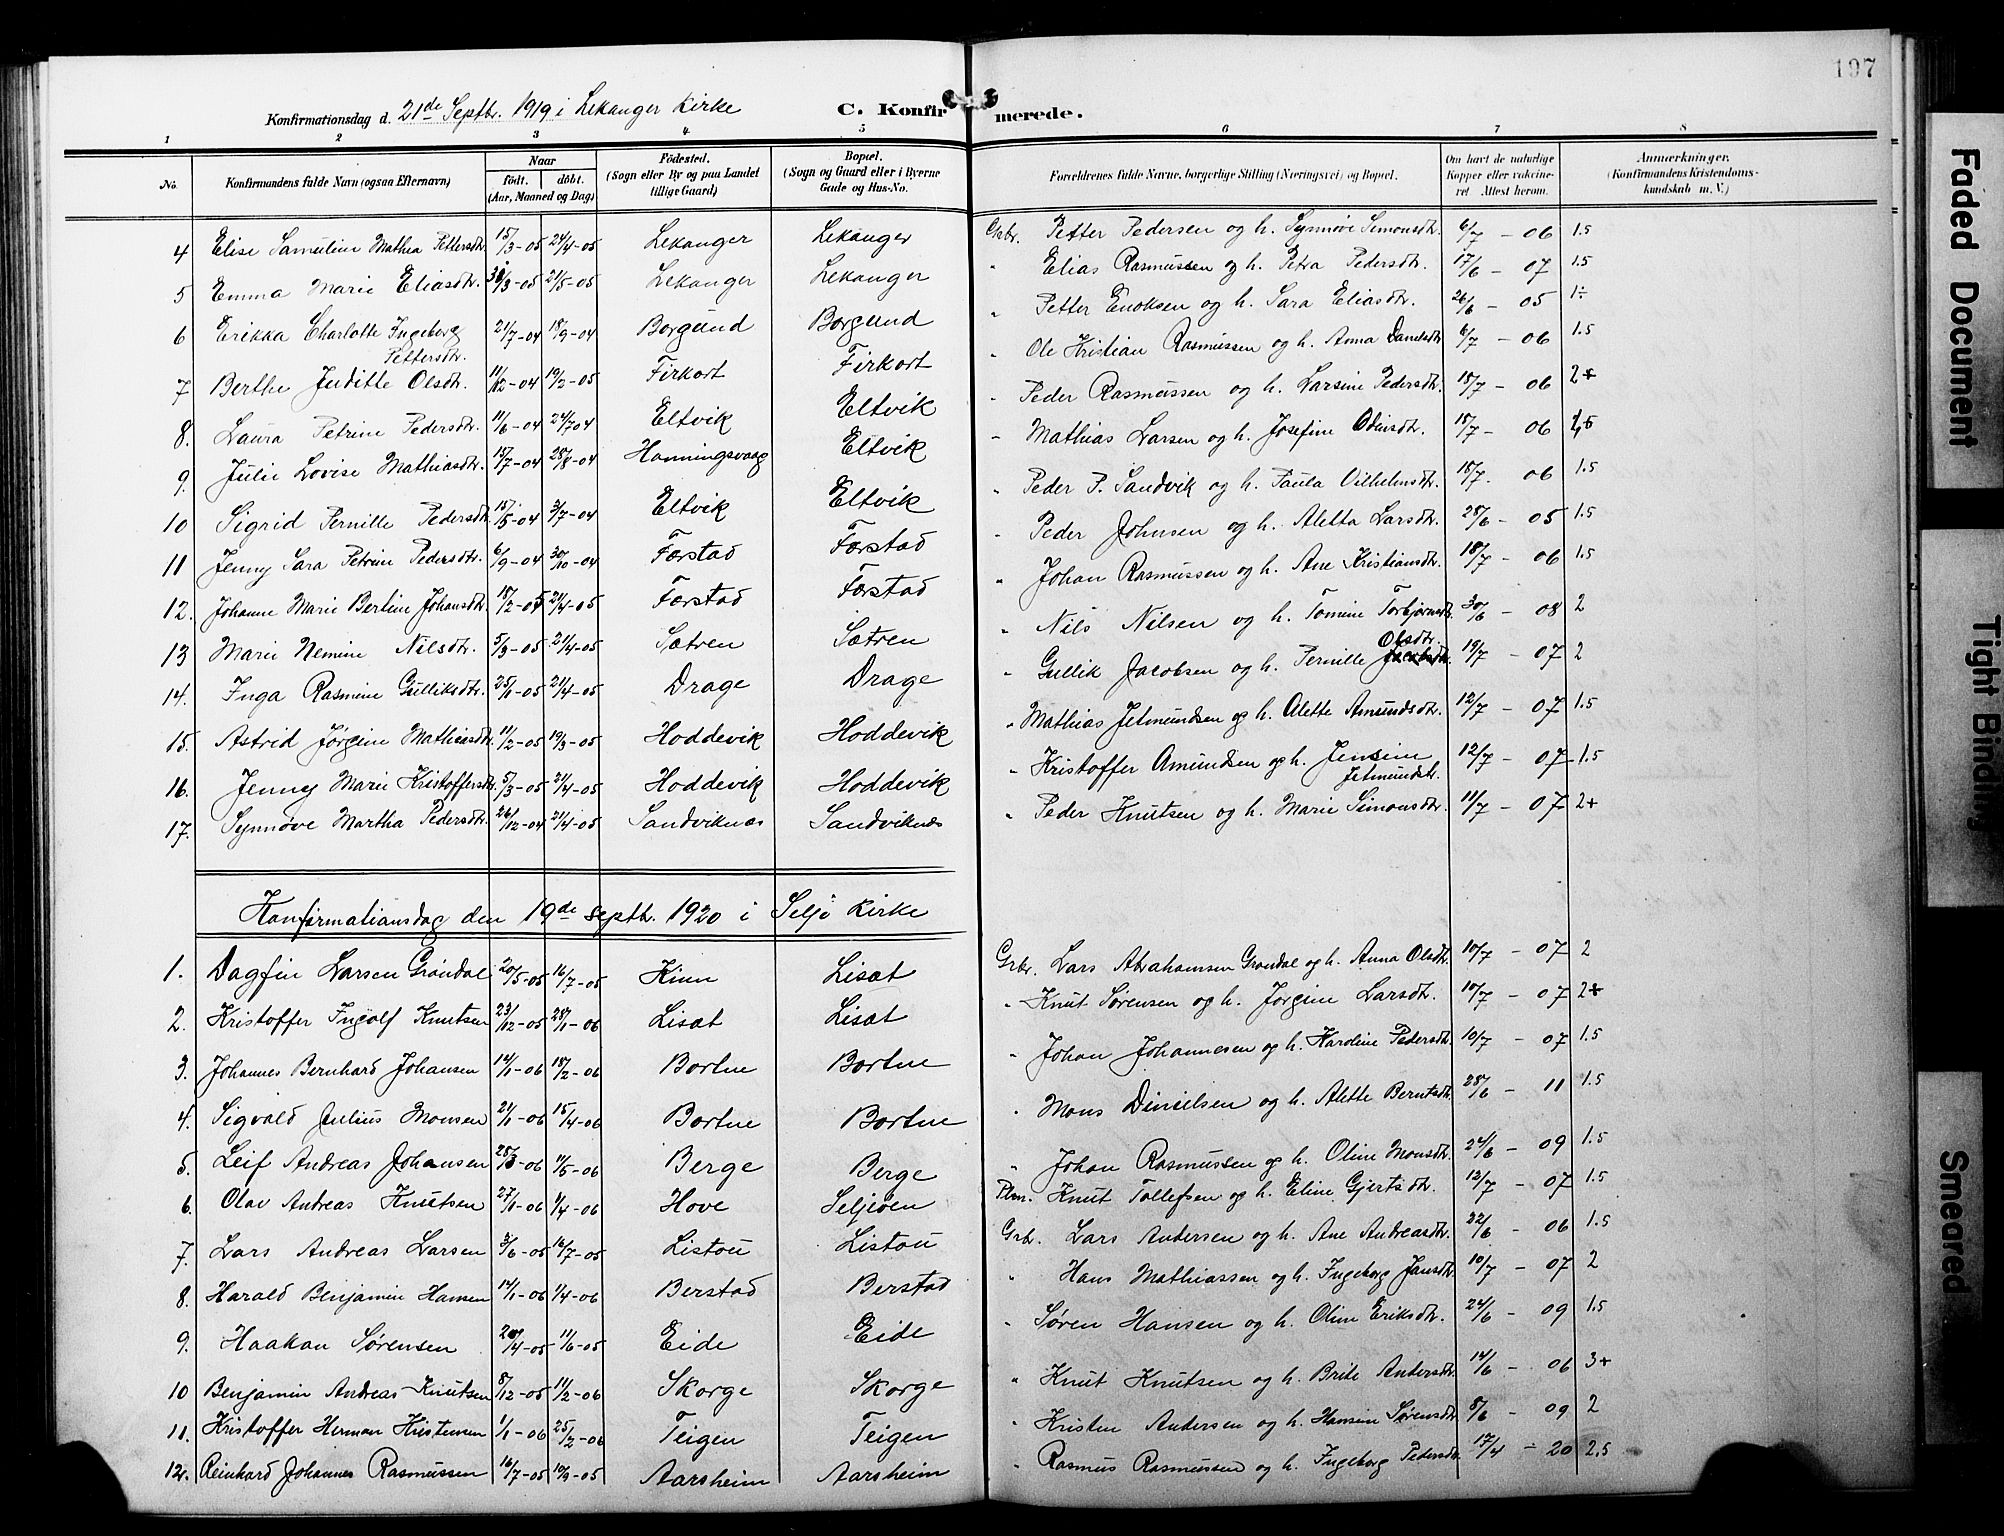 197
Konfirmationsdag d. 21de Septbr. 1919 i Lekanger Kirke C. Konfirmerede.
1 2 3 4 5 6 7 8
No. Konfirmandens fulde Navn (ogsaa Efternavn) Naar født. døbt. (Aar, Maaned og Dag) Fødested. (Sogn eller By og paa Landet tillige Gaard) Bopæl. (Sogn og Gaard eller i Byerne Gade og Hus-No. Forældrenes fulde Navne, borgerlige Stilling (Næringsvei) og Bopæl. Om havt de naturlige Kopper eller vakcineret Attest herom. Anmærkninger. (Konfirmandens Kristendomskundskab m. V.)
4 Elise Samuline Mathea Pettersdtr. 15/3-05 24/4-05 Lekanger Lekanger Gbr. Petter Pedersen og h. Synnøve Simonsdtr. 6/7 - 06 1.5
5 Emma Marie Eliasdtr. 31/3-05 21/5-05 Lekanger Lekanger " Elias Rasmussen og h. Petra Pedersdtr. 17/6 - 07 1.5
6 Erikka Charlotte Ingeborg Pettersdtr. 21/7-04 18/9-04 Borgund Borgund " Petter Enoksen og h. Sara Eliasdtr. 26/6 - 05 1÷
7 Berthe Juditte Olsdtr. 11/12-04 19/2-05 Firkort Firkort " Ole Kristian Rasmussen og h. Anna Danelsdtr. 6/7 - 06 1.5
8. Laura Petrine Pedersdtr. 11/6-04 24/7 04 Eltvik Eltvik " Peder Rasmussen og h. Larsine Pedersdtr. 18/7 - 06 2+
9. Julie Lovise Mathiasdtr. 15/7-04 28/8-04 Honningsvaag Eltvik " Mathias Larsen og h. Josefine Odinsdtr. 18/7 - 06 1,5
10 Sigrid Pernille Pedersdtr. 15/5-04 3/7-04 Eltvik Eltvik " Peder P. Sandvik og h. Paula Vilhelmsdtr. 18/7. 06 1.5
11 Jenny Sara Petrine Pedersdtr. 6/9-04 30/10-04 Førstad Førstad " Peder Johnsen og h. Aletta Larsdtr. 28/6 - 05 1.5
12. Johanne Marie Bertine Johansdtr. 18/2-05 21/4-05 Førstad Førstad " Johan Rasmussen og h. Ane Kristiansdtr. 18/7 - 06 1.5
13 Marie Nemine Nilsdtr. 5/3-05 21/4-05 Sætren Sætren " Nils Nilsen og h. Tomine Torbjørnsdtr. 30/6 - 08 2
14. Inga Rasmine Gulliksdtr. 25/1-05 21/4-05 Drage Drage " Gullik Jacobsen og h. Pernille Olsdtr. 19/7 - 07 2
15. Astrid Jørgine Mathiasdtr. 11/2-05 19/3-05 Hoddevik Hoddevik " Mathias Jetmundsen og h. Alette Amundsdtr. 12/7 - 07 1.5
16. Jenny Marie Kristoffersdtr. 5/3-05 21/4-05 Hoddevik Hoddevik " Kristoffer Amundsen og h. Jensine Jetmundsdtr. 12/7 - 07 1.5
17. Synnøve Martha Pedersdtr. 26/12-04 21/4-05 Sandviknæs Sandviknæs " Peder Knutsen og h. Marie Simonsdtr. 11/7 - 07 2+
Konfirmationsdag den 19de septb. 1920 i Seljo Kirke
1. Dagfin Larsen Grøndal 20/5-05 16/7-05 Kinn Lisæt Grbr. Lars Abrahamsen Grøndal og h. Anna Olsdtr. 10/7 - 07 2
2. Kristoffer Ingolf Knutsen 23/12-05 28/1-06 Lisæt Lisæt " Knut Sørensen og h. Jørgine Larsdtr. 10/7 - 07 2+
3. Johannes Bernhard Johansen 14/1-06 18/2-06 Bortne Bortne " Johan Johannesen og h. Karoline Pedersdtr. 10/7 - 07 1.5
4. Sigvald Julius Monsen 21/1-06 15/4-06 Bortne Bortne " Mons Dinielsen og h. Alette Berntsdtr. 28/6 - 11 1.5
5. Leif Andreas Johansen 25/3-06 11/5-06 Berge Berge " Johan Rasmussen og h. Oline Monsdtr. 24/6 - 09 1.5
6. Olav Andreas Knutsen 27/1-06 1/4-06 Hove Seljeøen Plm. Knut Tollefsen og h. Eline Gjertsdtr. 12/7 - 07 1.5
7. Lars Andreas Larsen 3/6-05 16/7-05 Listou Listou Grbr. Lars Andersen og h. Ane Andreasdtr. 22/6 - 06 1.5
8. Harald Benjamin Hansen 14/1-06 1/4-06 Berstad Berstad " Hans Mathiassen og h. Ingeborg Jansdtr. 10/7 - 07 2
9. Haakon Sørensen 20/4-05 11/6-05 Eide Eide " Søren Hansen og h. Oline Eriksdtr. 24/6 - 09 1.5
10 Benjamin Andreas Knutsen 8/12-05 11/2-06 Skorge Skorge " Knut Knutsen og h. Brite Andersdtr. 14/6 - 06 3+
11. Kristoffer Herman Kristensen 1/1-06 25/2-06 Teigen Teigen " Kristen Andersen og h. Hansine Sørensdtr. 8/6 - 09 2
12. Reinhard Johannes Rasmussen 16/7-05 10/9-05 Aarsheim Aarsheim " Rasmus Rasmussen og h. Ingeborg Pedersdtr. 17/4 - 20 2.5
Faded Document
Tight Binding
Smeared